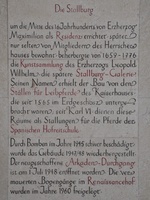 Die Stallburg
um die Mitte des 16. Jahrhunderts von Erzherzog
Maximilian als Residenz errichtet später
nur selten von Mitgliedern des Herrscher-
hauses bewohnt beherbergte von 1659-1776
die Kunstsammlung des Erzherzogs Leopold
Wilhelm, die spätere Stallburg-Galerie
Seinen Namen erhielt der Bau von den
Stallen für Leibpferde des Kaiserhauses
die seit 1565 im Erdgeschoß unterge-
bracht waren, seit Karl VI dienen diese
Räume als Stallungen für die Pferde der
Spanischen Hofreitschule.
Durch Bomben im Jahre 1945 schwer beschädigt
wurde das Gebäude 1947/48 wiederhergestellt
Der neugeschaffene Arkaden-Durchgang
ist am 5. Juli 1948 eröffnet worden. Die ver-
mauerten Bogengänge im Renaissancehof
wurden im Jahre 1960 freigelegt.